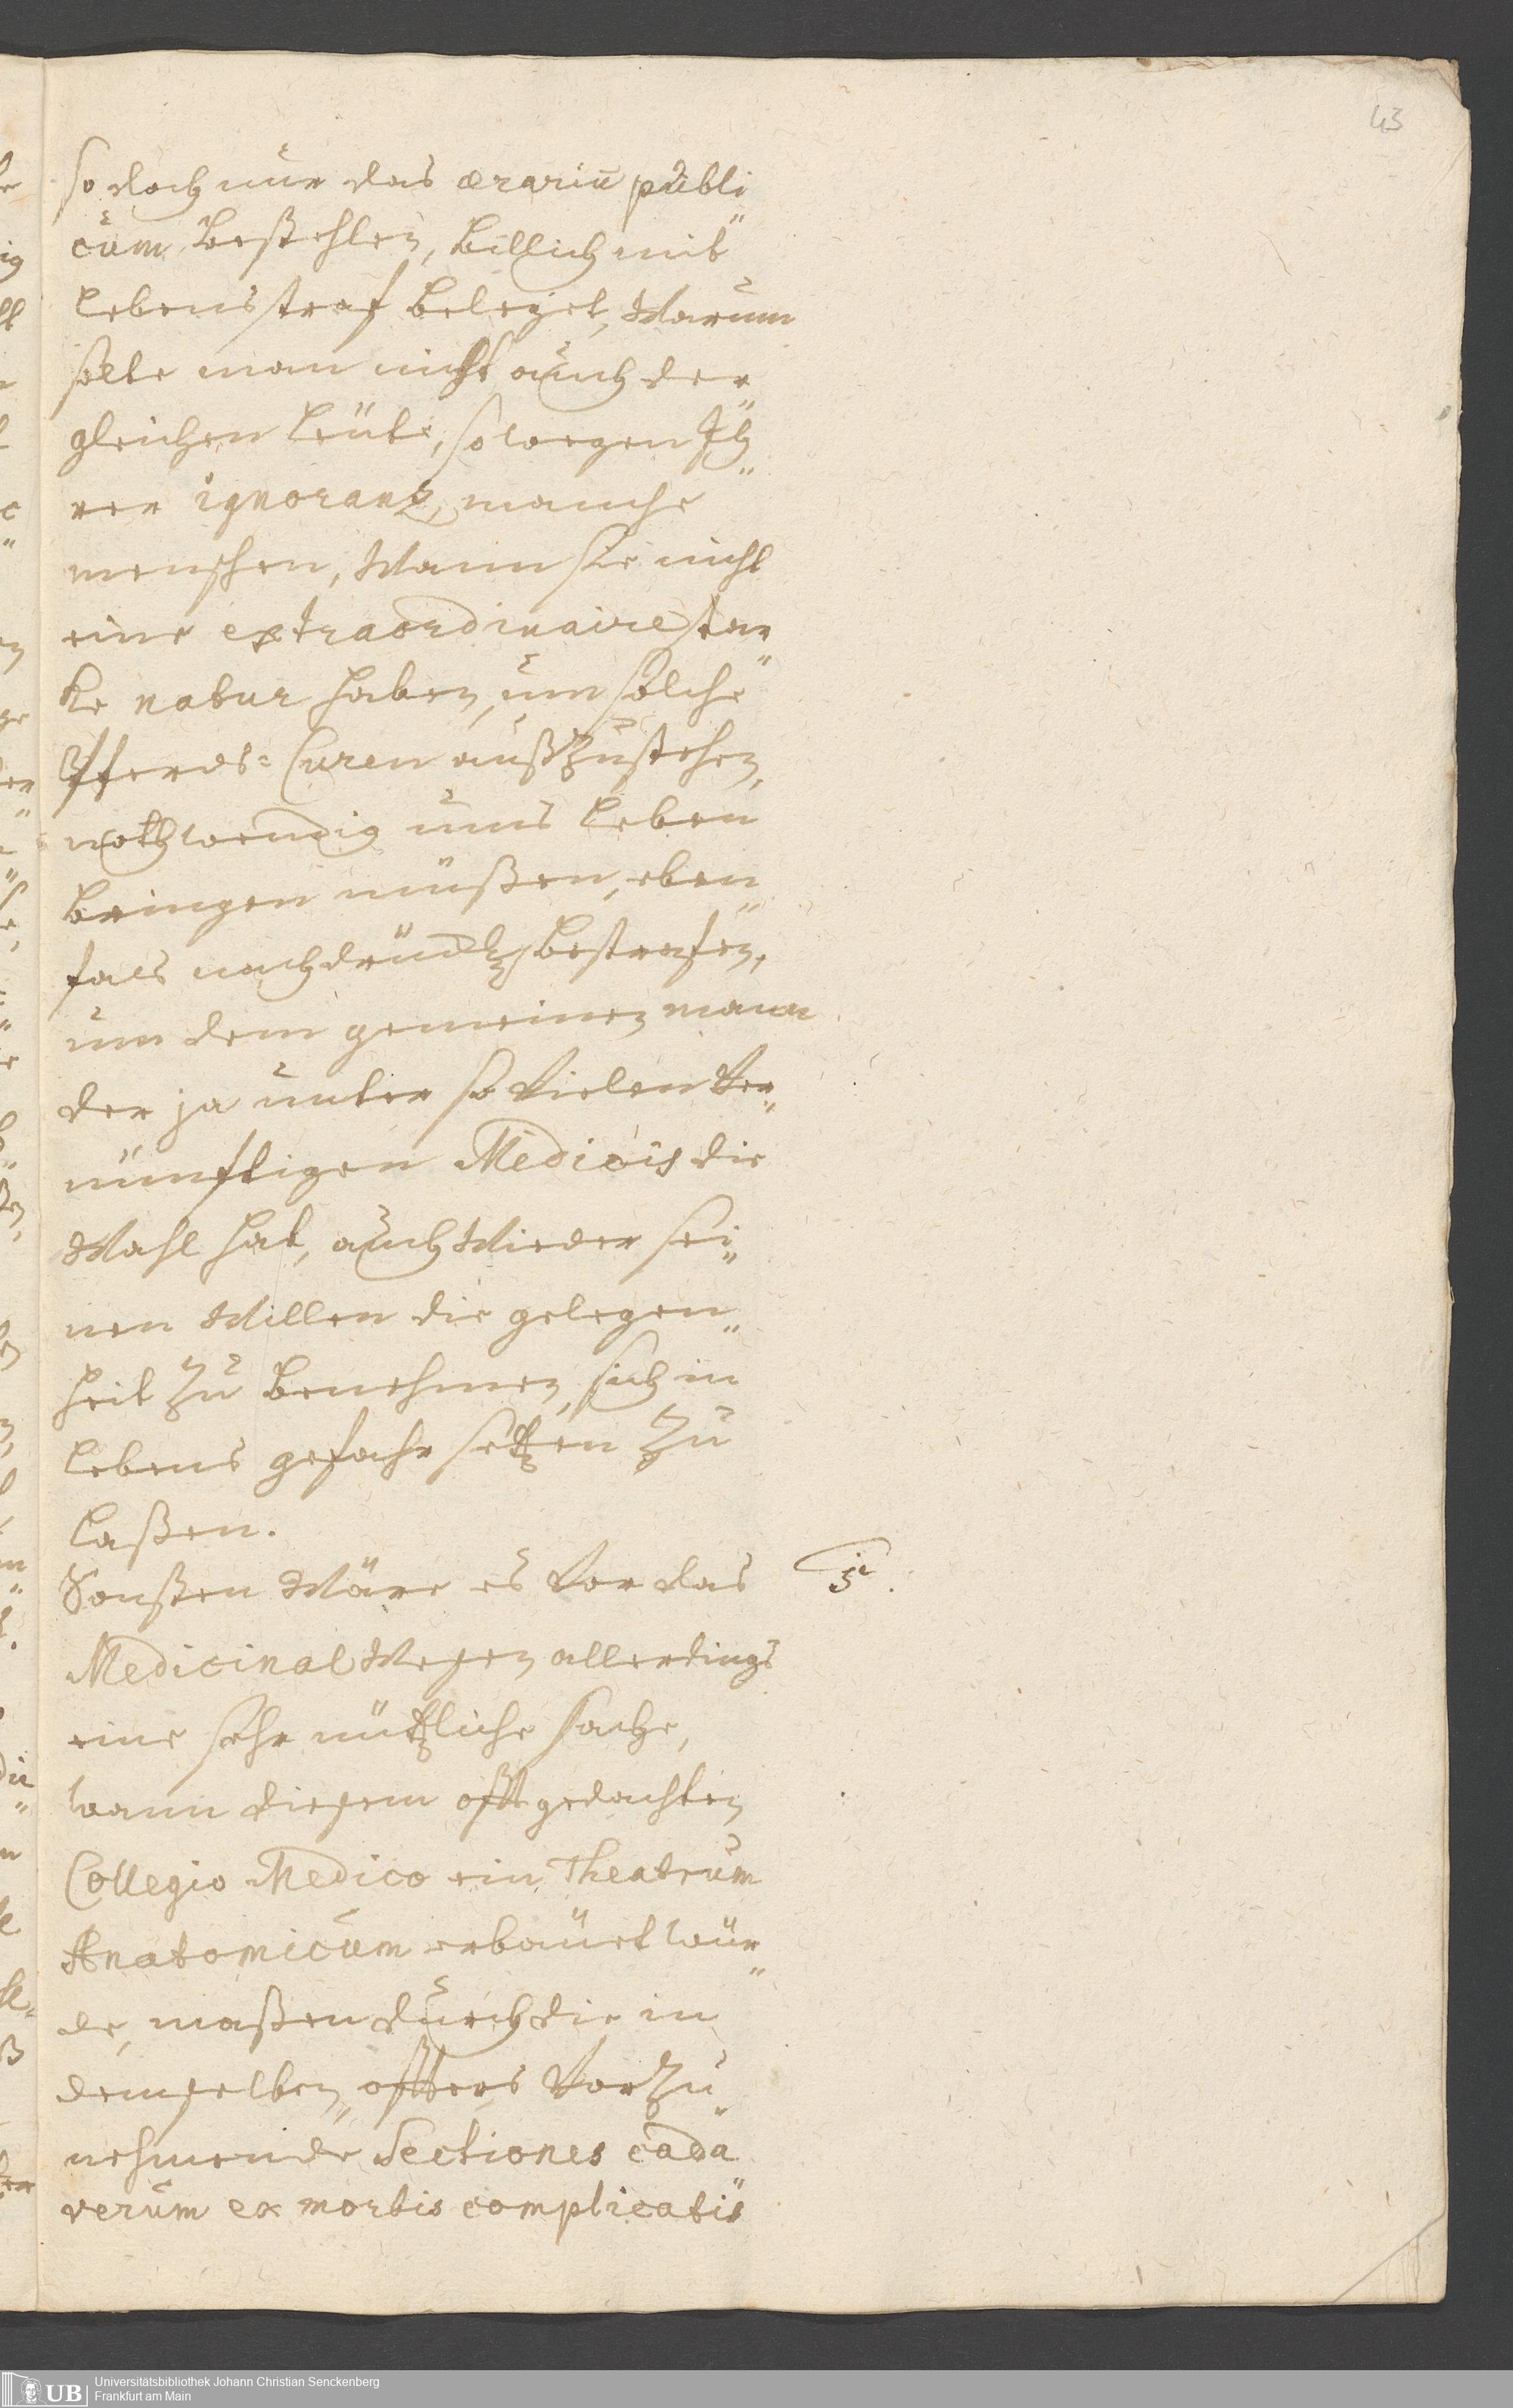 43
so doch nur das ærariū publi
cum bestehlen, billich mit
lebens straf beleget, Warum
solte man nicht auch der„
gleichen leüte, so wegen Ih„
rer ignoranz, manche
menschen, Wann sie nicht
eine extraordinaire star„
ke natur haben, um solche
Pferds=Curen außzustehen,
nothwendig ums leben
bringen müßen, eben„
fals nachdrücklich bestrafen,
um dem gemeinen mann
der ja unter so Vielen Ver„
nünftigen Medicis die
Wahl hat, auch Wieder sei„
nen Willen die gelegen„
heit zu benehmen, sich in
lebens gefahr setzen zu
laßen.
Sonsten Wäre es Vor das
Medicinal Wesen allerdings
eine sehr nützliche sache,
wann diesem offt gedachten
Collegio Medico ein Theatrum
Anatomicum erbauet wür„
de, maßen durch die in
demselben öffters Vorzu„
nehmende Sectiones cada„
verum ex morbis complicatis
UB
Universitätsbibliothek Johann Christian Senckenberg
Frankfurt am Main